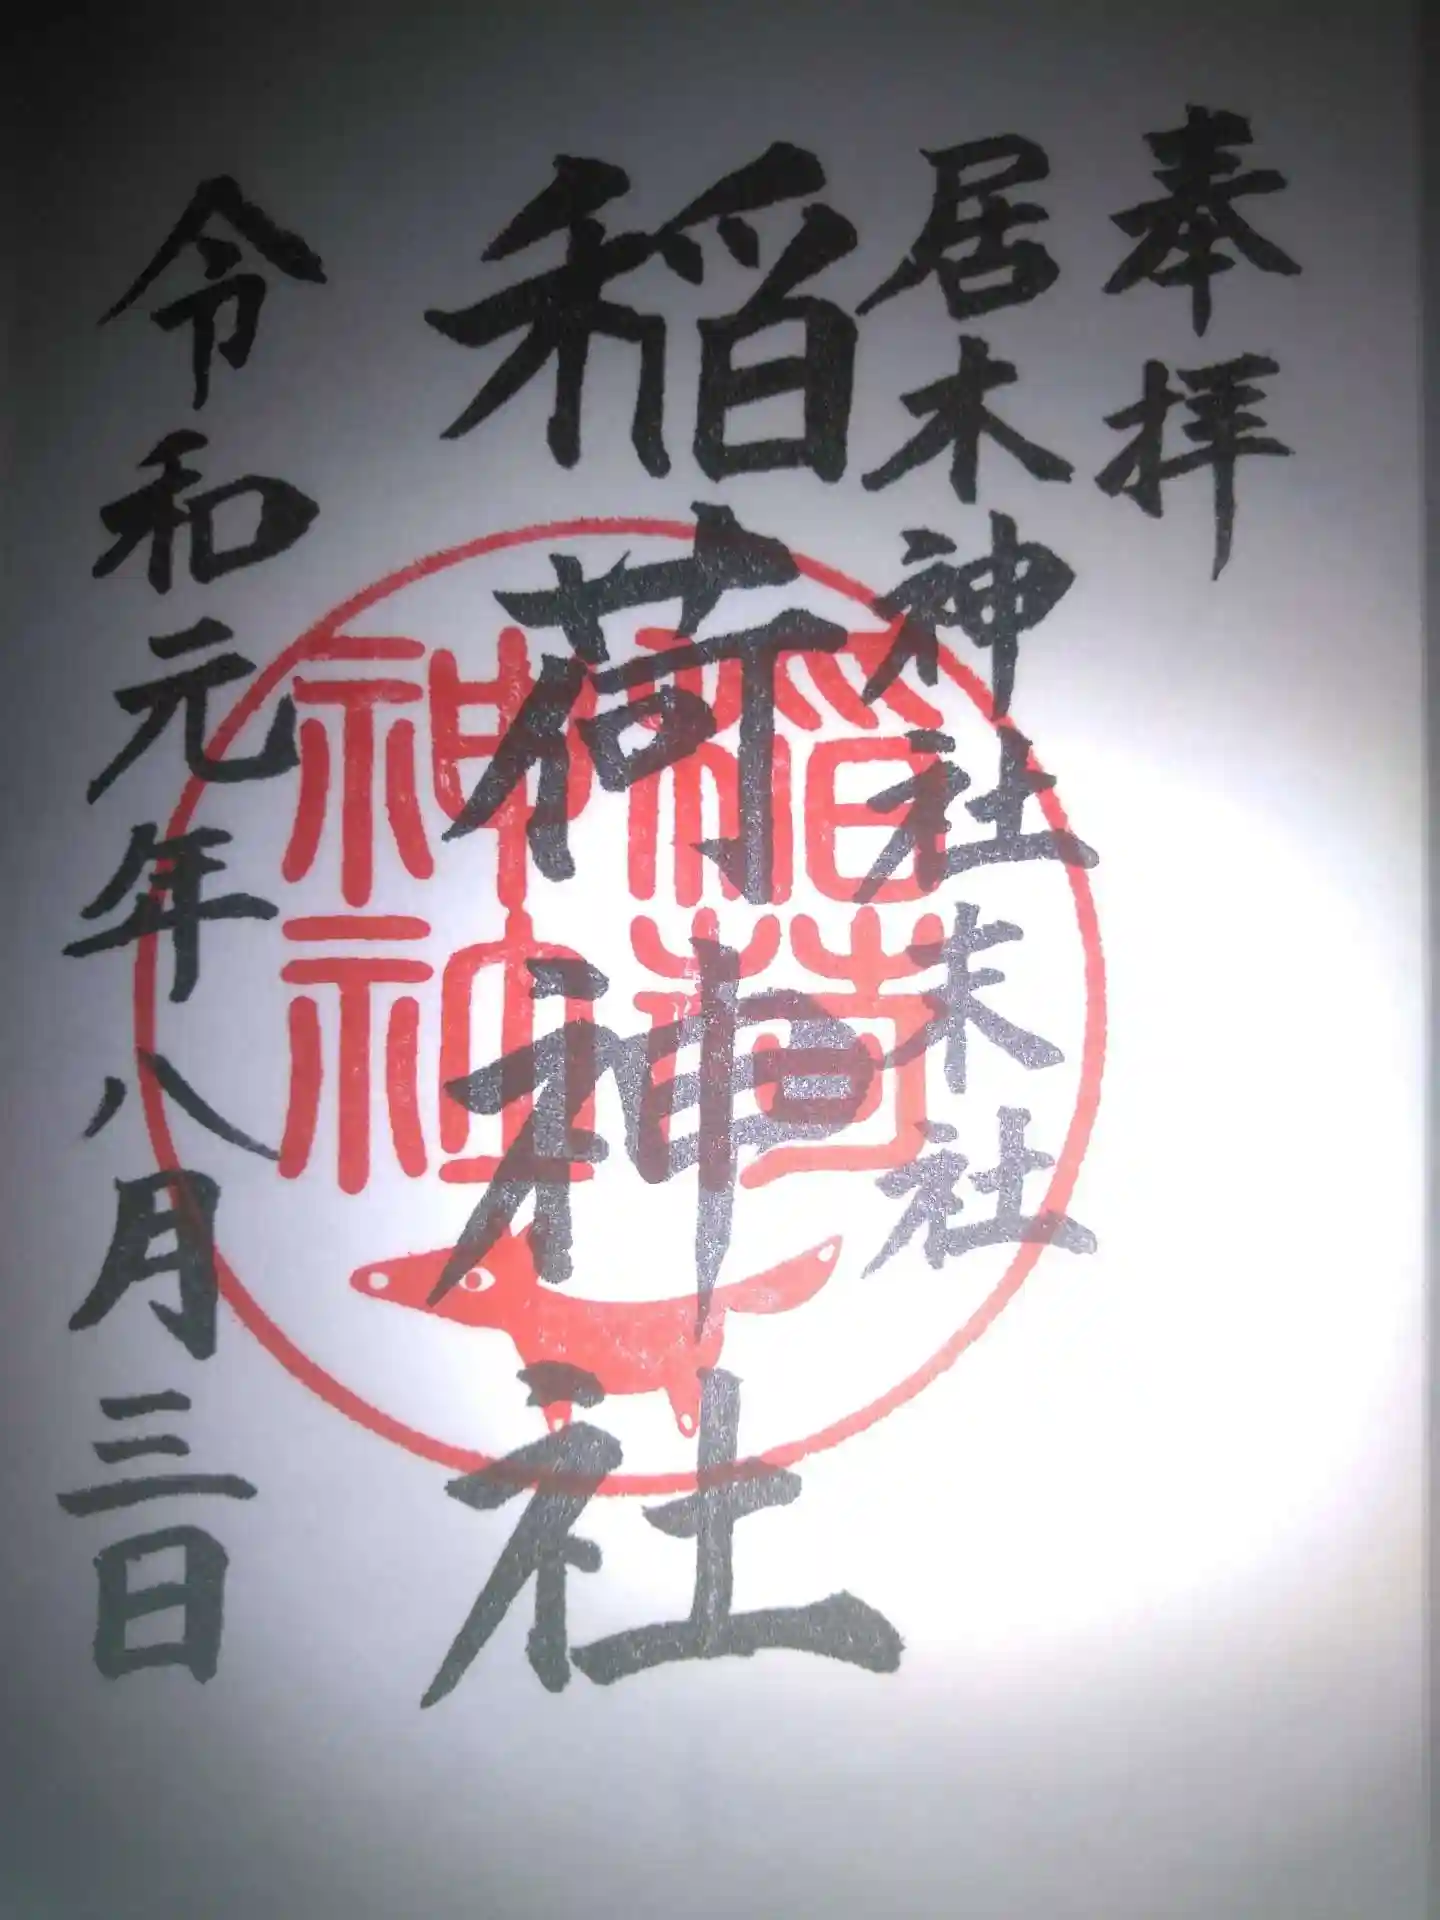 奉拝
居木神社末社
稲荷神社
稲荷
神社
令和元年八月三日